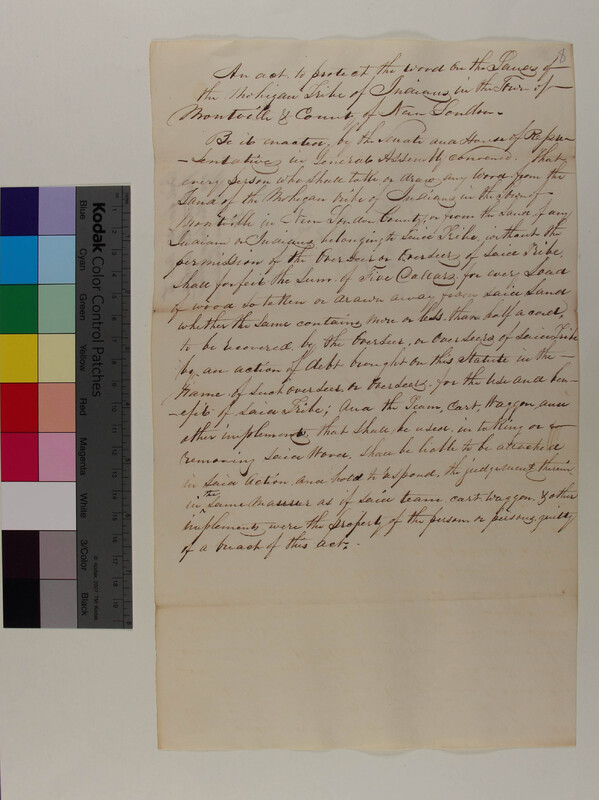 8
An act to protect the wood on the Lands of
the Mohigan Tribe of Indians in the Town of
Montville & County of New London.
Be it enacted, by the Senate and House of Repre-
-sentatives in General Assembly convened. That
every person who shall take or draw any Wood from the
Land of the Mohegan tribe of Indians in the town of
Montville in New London County, or from the land of any
Indian or Indians belonging to said Tribe, without the
permission of the Overseer or Overseers of said Tribe,
shall forfeit the Sum of Five Dollars, for ever Load
of wood so taken or drawn away from said Land
whether the same contains more or less than half a cord,
to be recovered by the Overseer, or Overseers of said Tribe
by an action of debt brought on this statute in the
Name of such overseer or Overseers, for the Use and ben-
-efit of said Tribe; And the Team, Cart, Waggon and
other implements, that shall be used in taking or
removing said Wood, shall be liable to be attached
in said Action and held to respond, the judgement therein
in the Same Manner as if said team, cart, waggon, & other
implements were the property of the person or persons guilty
of a breach of this act.
Kodak Color Control Patches
Blue
Cyan
Green
Yellow
Red
Magenta
White
3/Color
Black